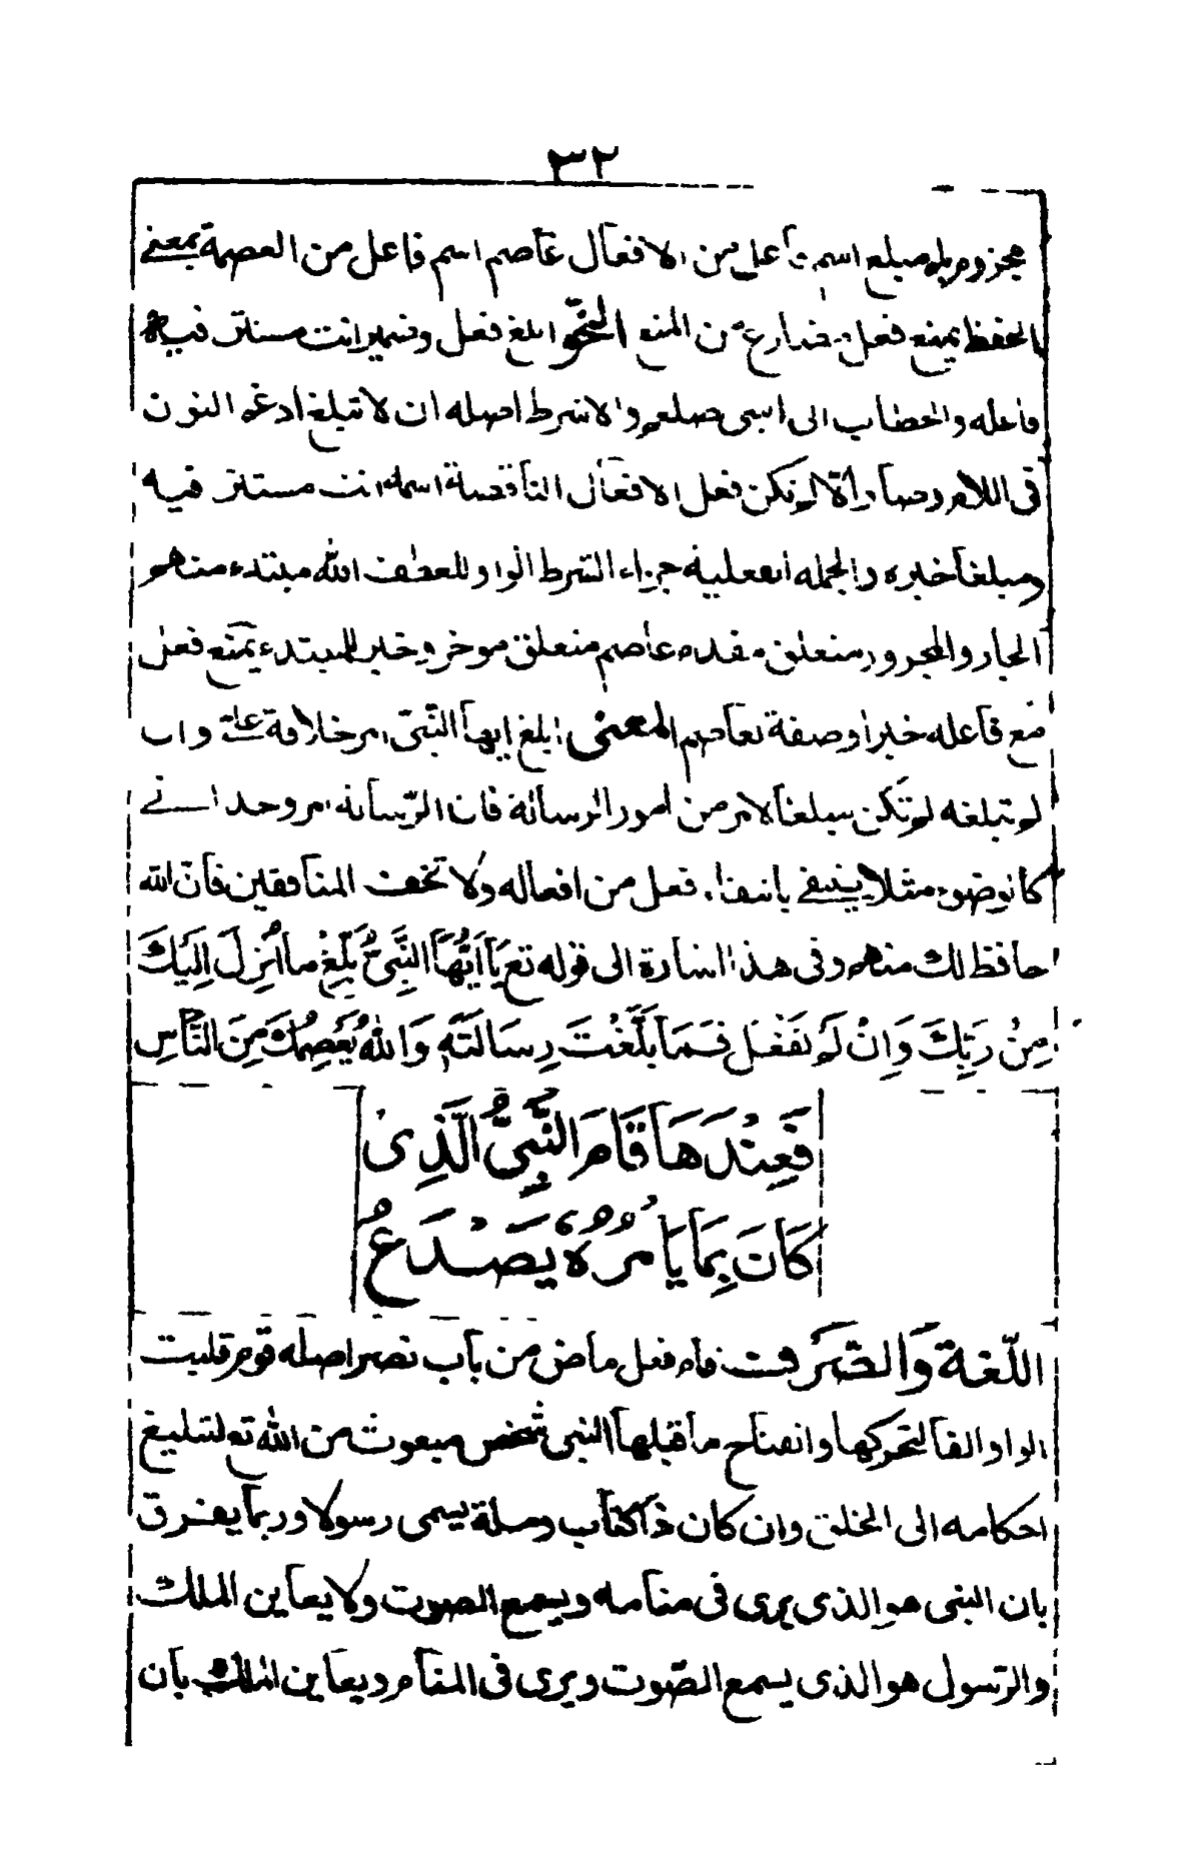 ٣٢
مجزوم بلم مبلغ اسم فاعل من الافعال عاصم اسم فاعل من العصمة بمعنے
الحفظ يمنع فعل مضارع من المنع النحو ابلغ فعل وضمير انت مستتر فيه
فاعله والخطاب الى النبى صلعم والا شرط اصله ان لا تبلغ ادغم النون
فى اللام وصار الا لم تكن فعل الافعال الناقصة اسمه انت مستتر فيه
ومبلغا خبره والجمله الفعلية جزاء الشرط الواو للعطف الله مبتدء منهم
الجار والمجرور متعلق مقدم عاصم متعلق موخر وخبر للمبتدء يمنع فعل
مع فاعله خبر او صفة لعاصم المعنى ابلغ ايها النبى امر خلافة على وان
لم تبلغه لم تكن مبلغا لامر من امور الرسالة فان الرسالة امر وحدانے
كالوضوء مثلا ينتفے بانتفاء فعل من افعاله ولا تخف المنافقين فان الله
حافظ لك منهم وفى هذا اشارة الى قوله تع يَا اَيُّهَا النَّبِىُّ بَلِّغْ ما اُنْزِلَ اِلَيْكَ
مِنْ رَبِّكَ وَاِنْ لَمْ تَفْعَلْ فَمَا بَلَّغْتَ رِسَالَتَهُ وَاللهُ يَعْصِمُكَ مِنَ النَّاسِ
فَعِنْدَهَا قَامَ النَّبِىُّ الَّذِىْ
كَانَ بِمَا يَامُرُهُ يَصْدَعُ
اللّغة وَالصَّرف قام فعل ماض من باب نصر اصله قوم قلبت
الواو الفا لتحركها وانفتاح ما قبلها النبى شخص مبعوث من الله تع لتبليغ
احكامه الى الخلق وان كان ذا كتاب وملة يسمى رسولا وربما يفرق
بان النبى هو الذى يرى فى منامه ويسمع الصوت ولا يعاين الملك
والرسول هو الذى يسمع الصّوت ويرى فى المنام ويعاين الملك بان